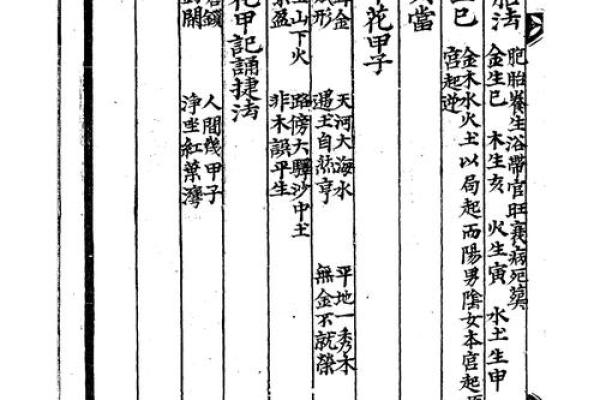 法 胞胎養生浴帶官旺衰病死葬
金生巳 木生亥 火生寅 水土生申
巳 金木水火土以局起而陽男陰女本宮起
宮起逆
當
花甲子
金 天河大海水 平地一秀木
形 遇土自然亨 無金不就榮
山下火 路傍大驛沙中土
盈 非木誤平生
花甲記誦捷法
人間幾甲子
關 淨坐紅葉灣